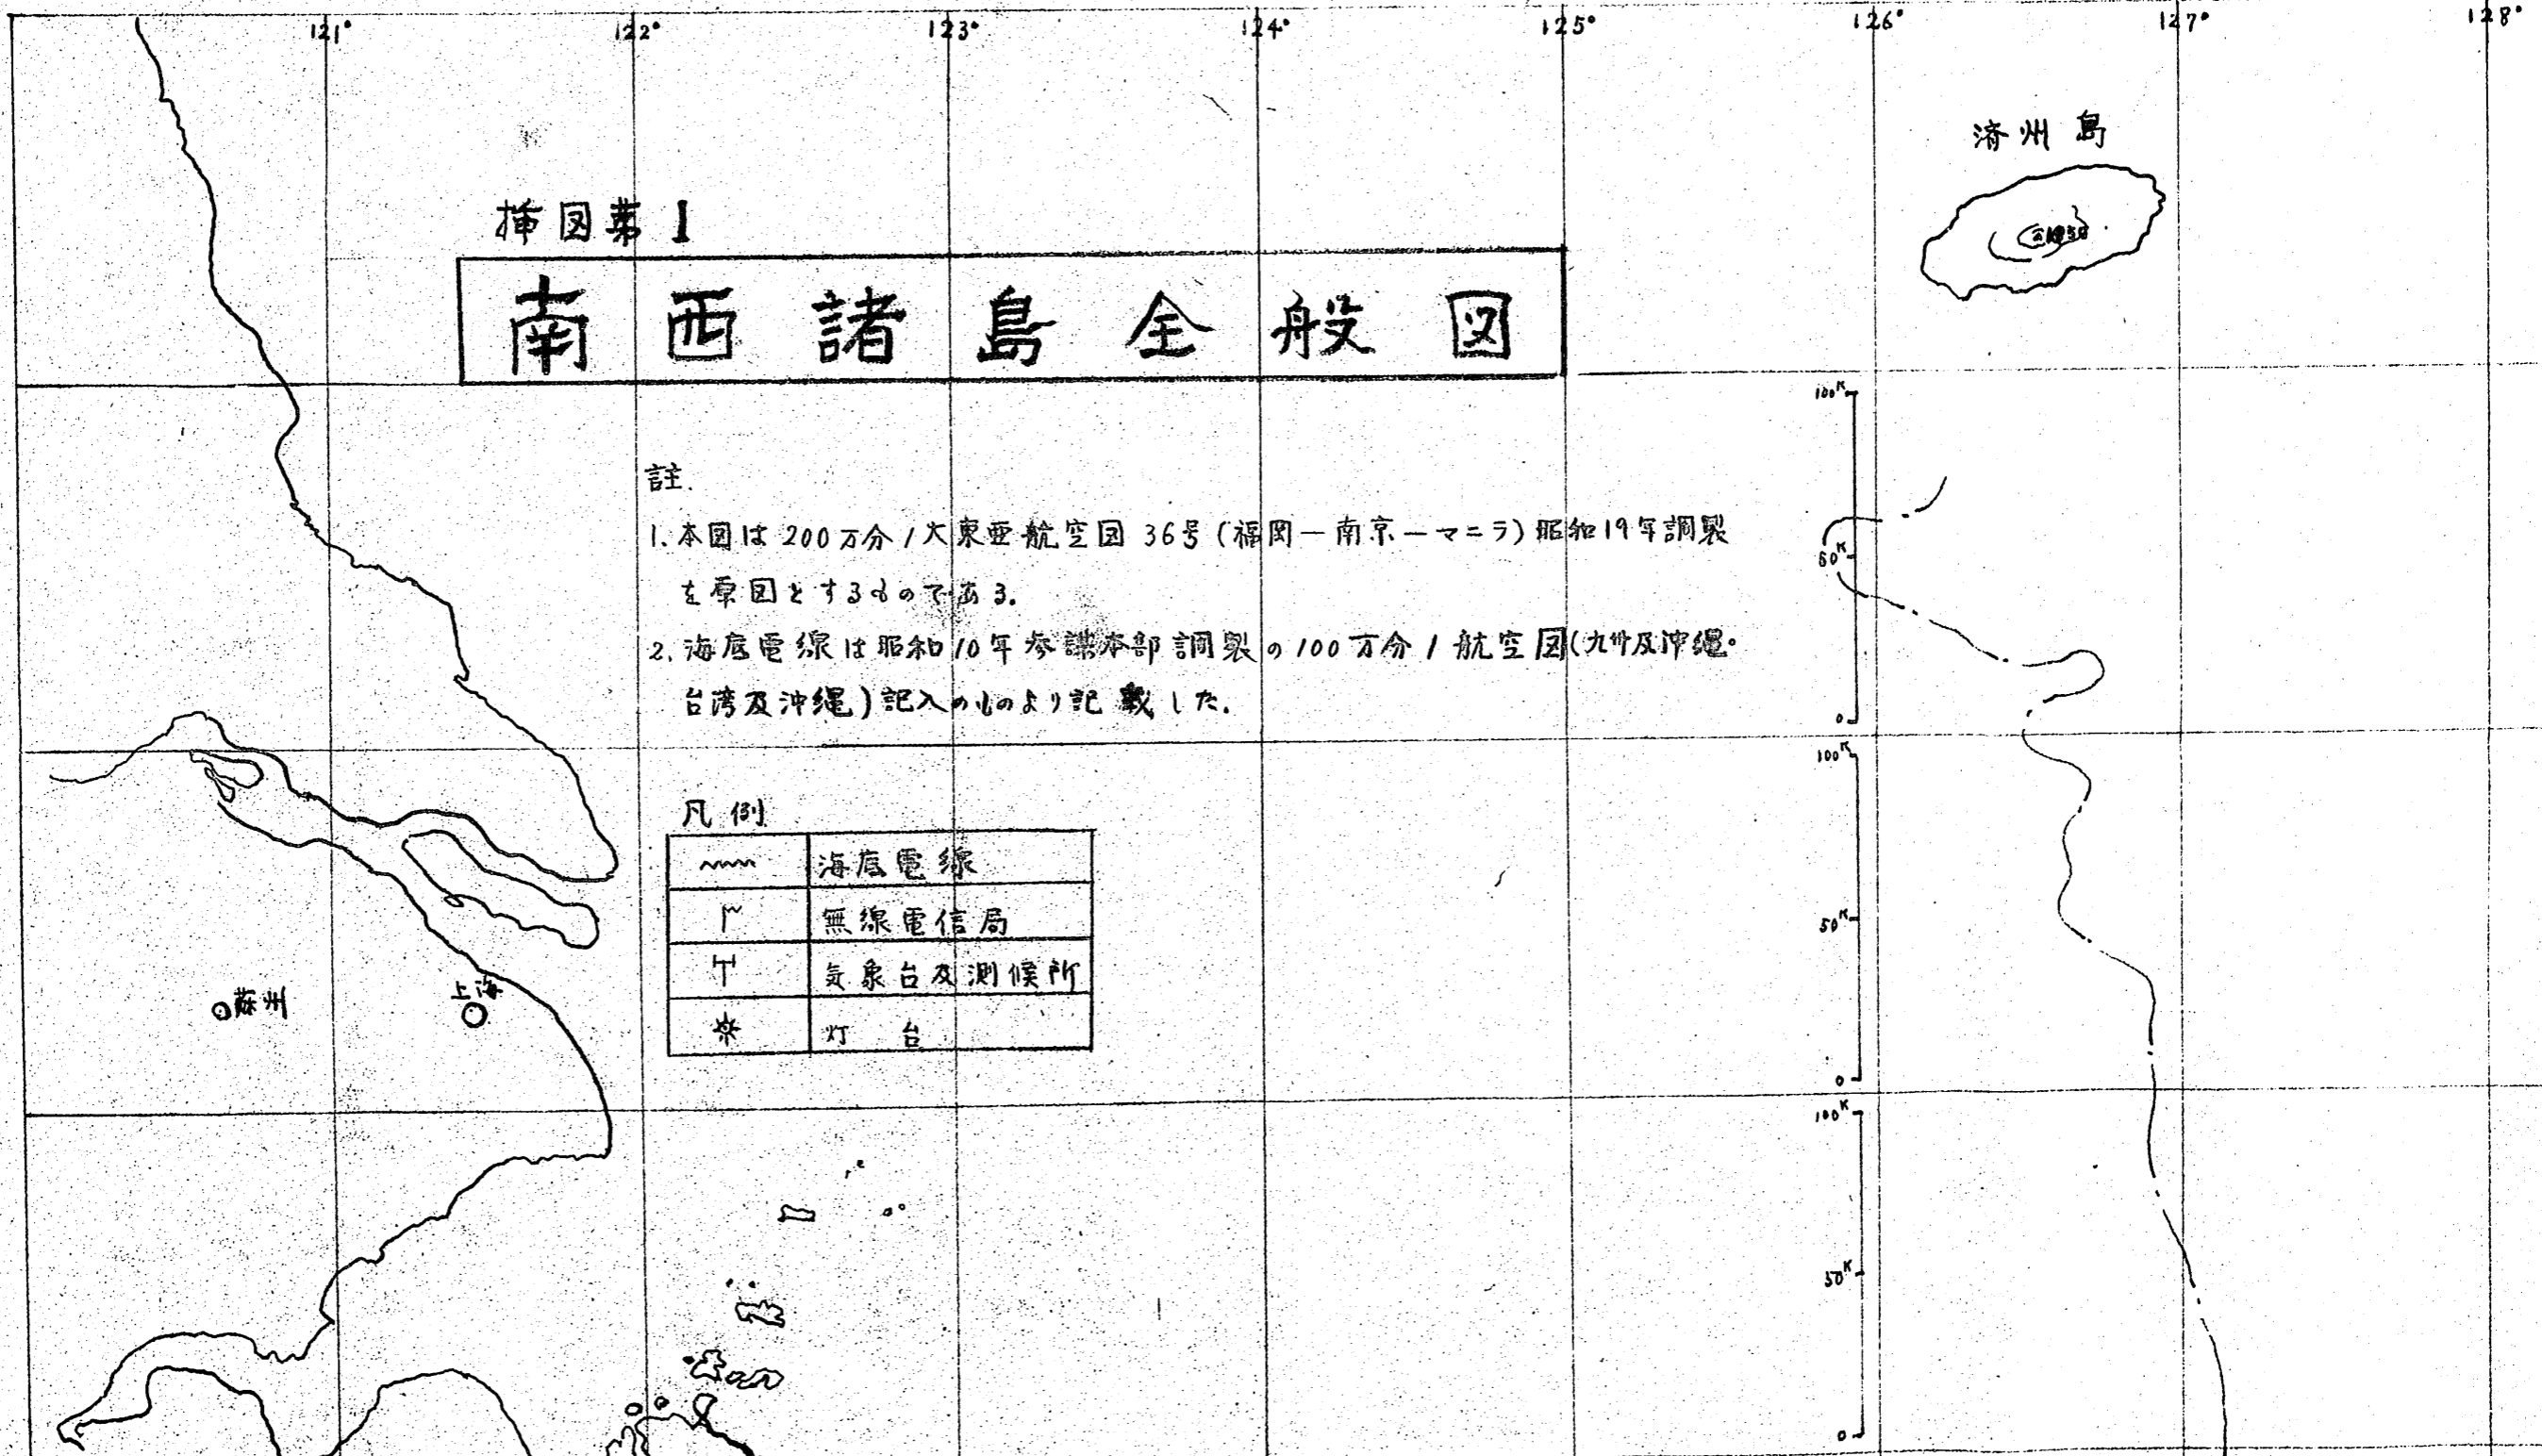 121° 122° 123° 124° 125° 126° 127° 128°
済州島
挿図第1
南西諸島全般図
註.
1. 本図は200万分1大東亜航空図36号(福岡―南京―マニラ)昭和19年調製
を原図とするものである.
2. 海底電線は昭和10年参謀本部調製の100万分1航空図(九州及沖縄・
台湾及沖縄)記入のものより記載した.
凡例
海底電線
無線電信局
気象台及測候所
灯台
蘇州
上海
100K
50K
0
100K
50K
0
100K
50K
0